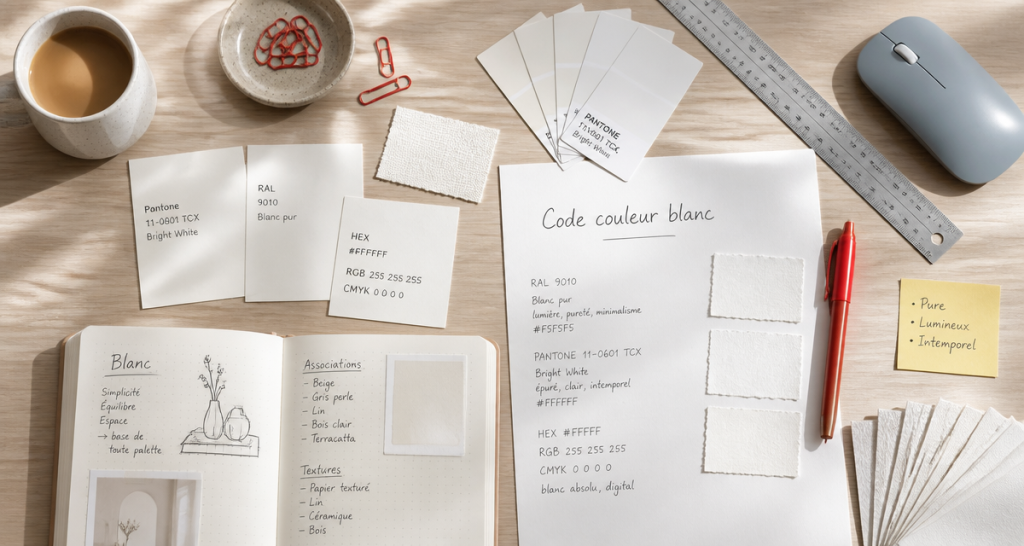 PANTONE
11-0601 TCX
Bright White
Pantone
11-0601 TCX
Bright White
RAL
9010
Blanc pur
HEX
#FFFFFF
RGB 255 255 255
CMYK 0 0 0 0
Code couleur blanc
RAL 9010
Blanc pur
lumière, pureté, minimalisme
#F5F5F5
PANTONE 11-0601 TCX
Bright White
épuré, clair, intemporel
#FFFFFF
HEX #FFFFF
RGB 255 255 255
CMYK 0 0 0 0
blanc absolu, digital
• Pure
• Lumineux
• Intemporel
Blanc
Simplicité
Équilibre
Espace
→ base de
toute palette
Associations
- Beige
- Gris perle
- Lin
- Bois clair
- Terracatta
Textures
- Papier texturé
- Lin
- Céramique
- Bois